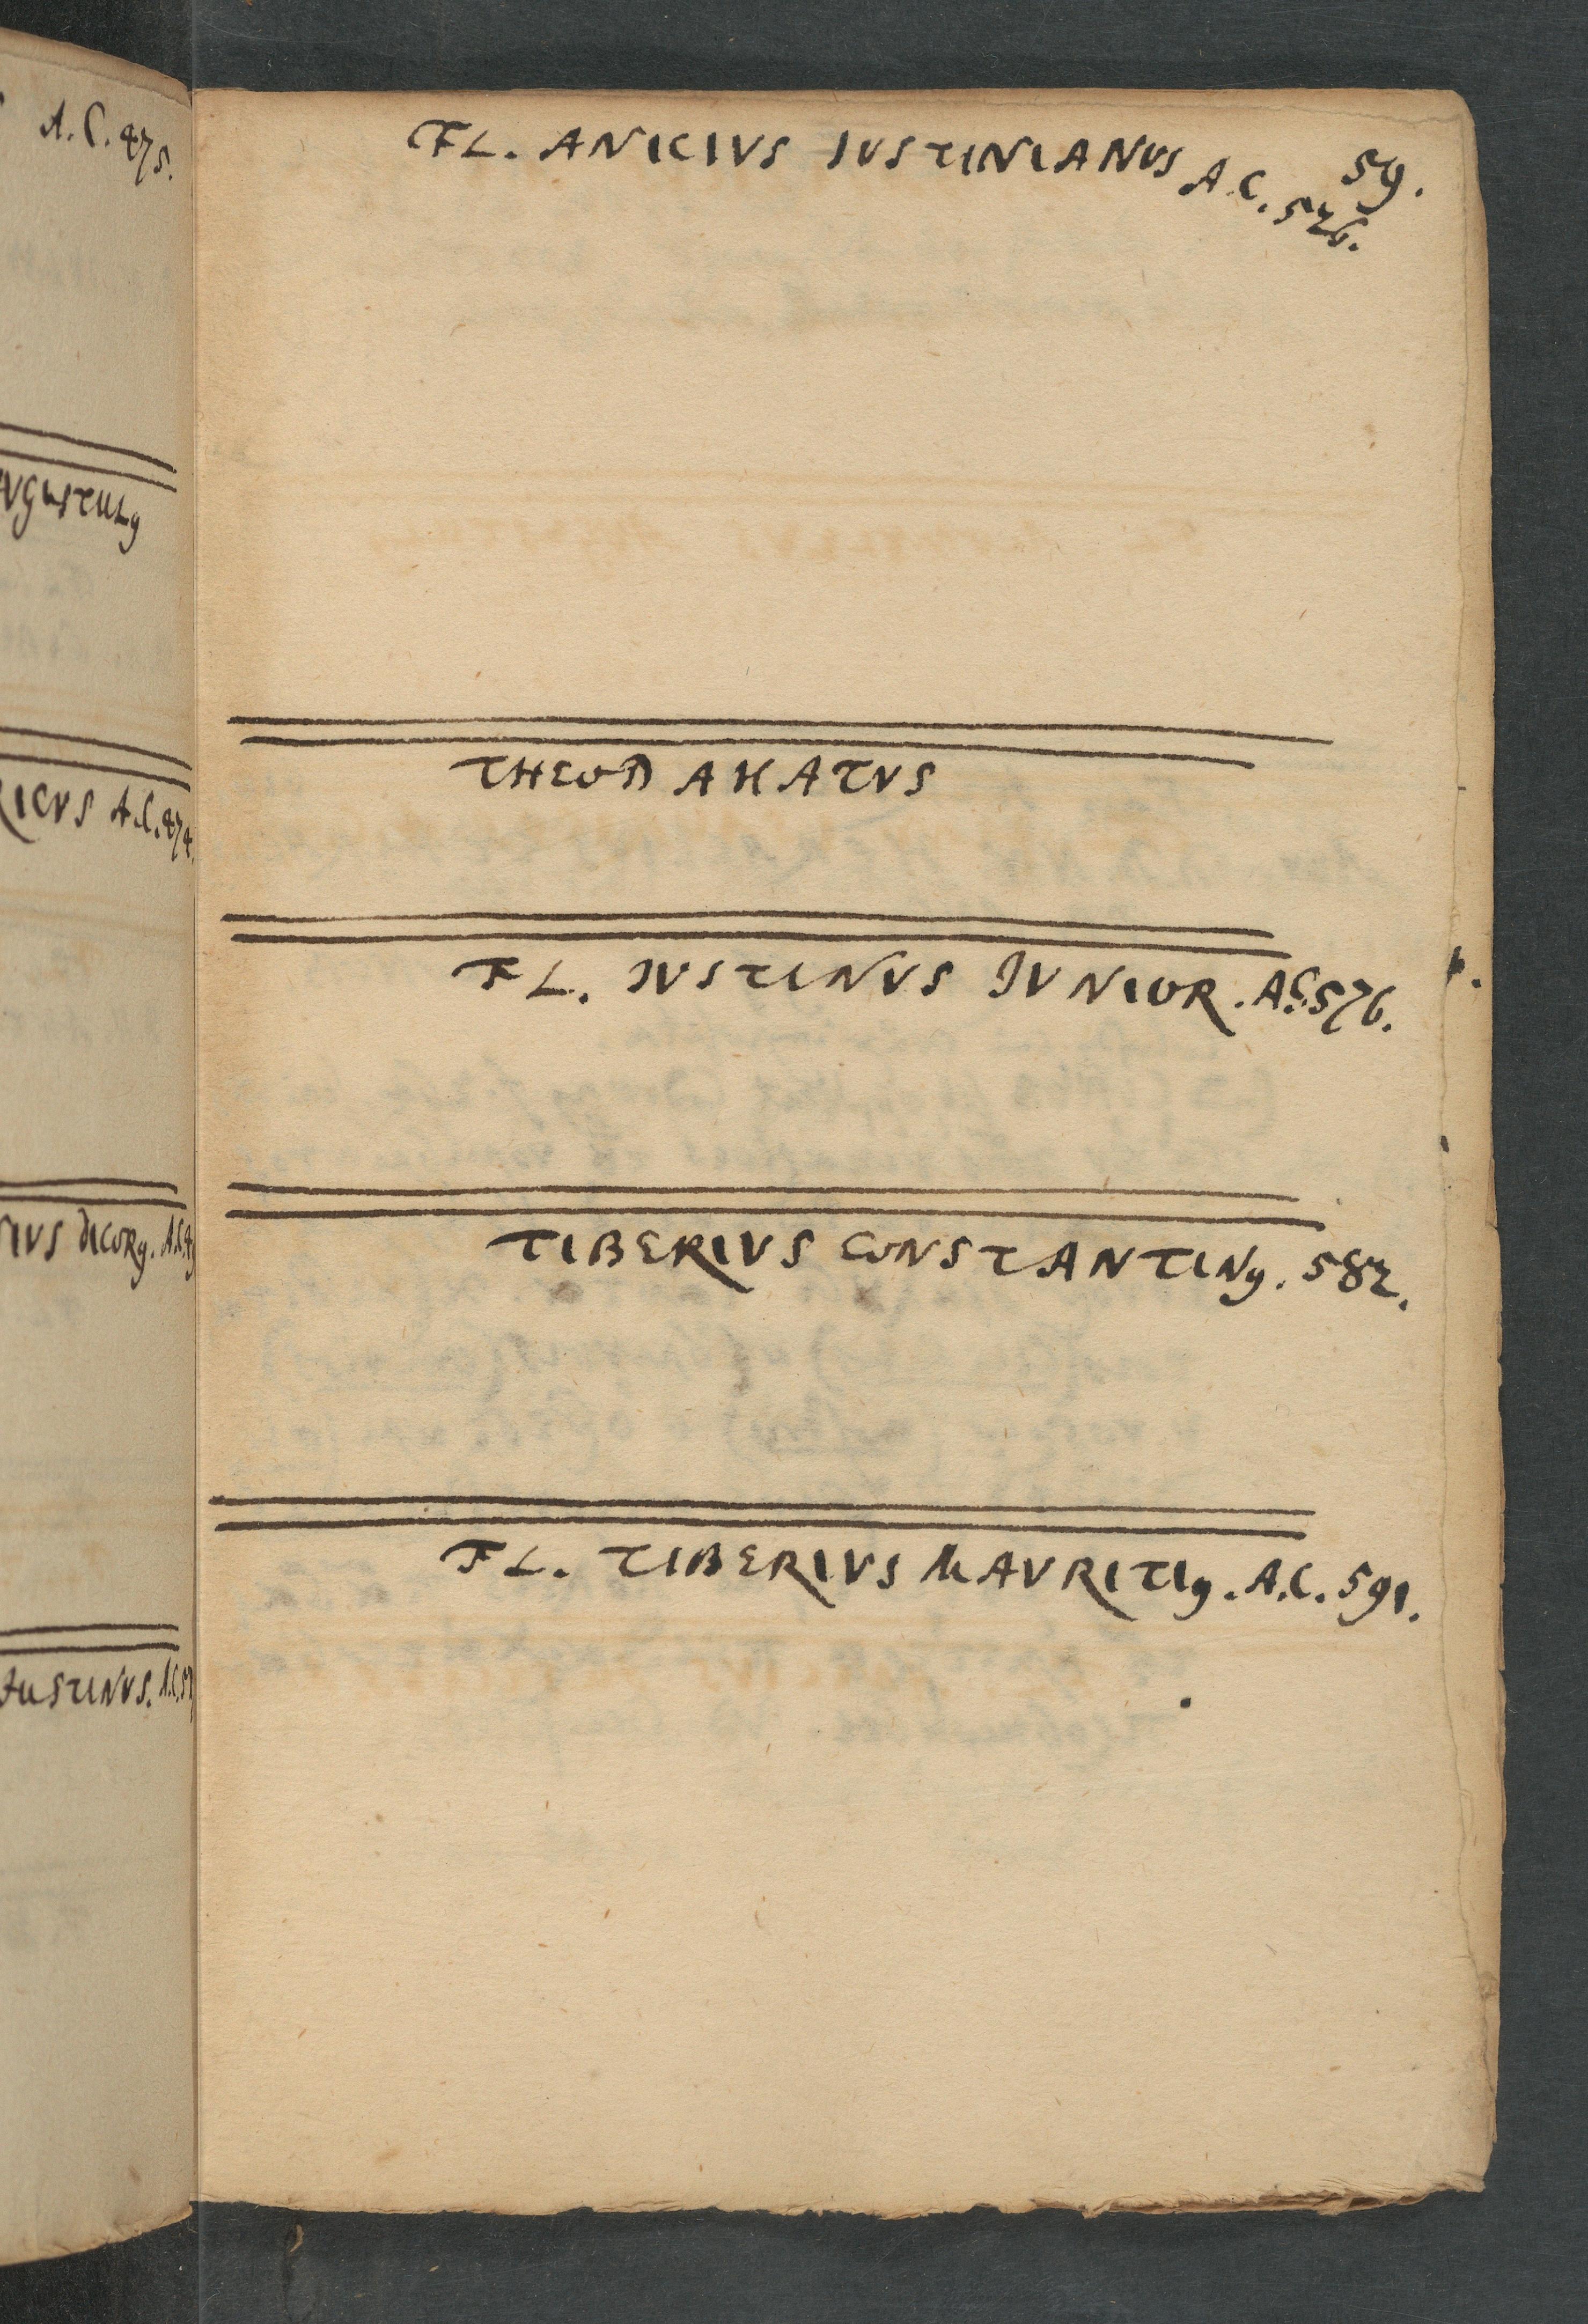 A.C. 475.
AUGUSTULꝰ
RICVS A.C. 474.
DICORꝰ. A.C.
JUSTINVS. A.C.
FL. ANICIVS IVSTINIANVS A.C. 526.
59.
THEODAHATVS
FL. IVSTINVS JVNIOR. A.C. 576.
TIBERIVS CONSTANTINꝰ. 582.
FL. TIBERIVS MAVRITIꝰ. A.C. 591.